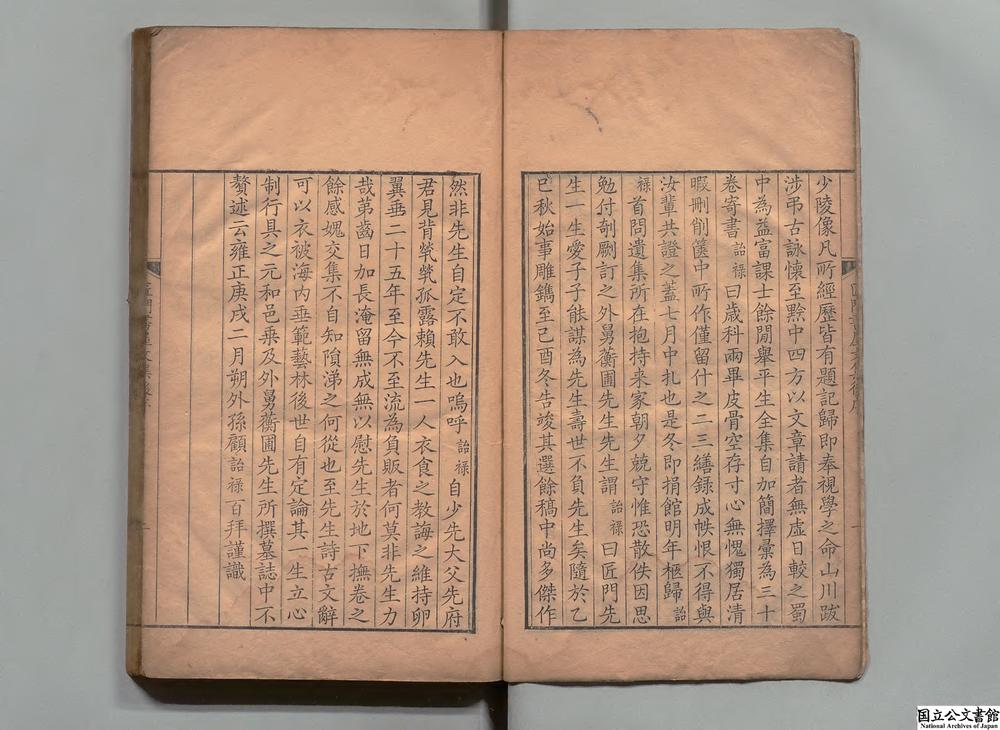 少陵像凡所經歷皆有題記歸即奉視學之命山川跋
涉弔古詠懷至黔中四方以文章請者無虛日較之蜀
中為益富課士餘閒舉平生全集自加簡擇彙為三十
卷寄書詒祿曰歲科兩畢皮骨空存寸心無愧獨居清
暇刪削篋中所作僅留什之二三繕錄成帙恨不得與
汝輩共證之蓋七月中札也是冬即捐館明年柩歸詒
祿首問遺集所在抱持来家朝夕兢守惟恐散佚因思
勉付剞劂訂之外舅蘅圃先生先生謂詒祿曰匠門先
生一生愛子子能謀為先生壽世不負先生矣隨於乙
巳秋始事雕鐫至己酉冬告竣其選餘稿中尚多傑作
然非先生自定不敢入也嗚呼詒祿自少先大父先府
君見背煢煢孤露賴先生一人衣食之教誨之維持卵
翼垂二十五年至今不至流為負販者何莫非先生力
哉苐齒日加長淹留無成無以慰先生於地下撫卷之
餘感媿交集不自知隕涕之何從也至先生詩古文辭
可以衣被海內垂範藝林後世自有定論其一生立心
制行具之元和邑乗及外舅蘅圃先生所撰墓誌中不
贅述云雍正庚戌二月朔外孫顧詒祿百拜謹識
国立公文書館
National Archives of Japan